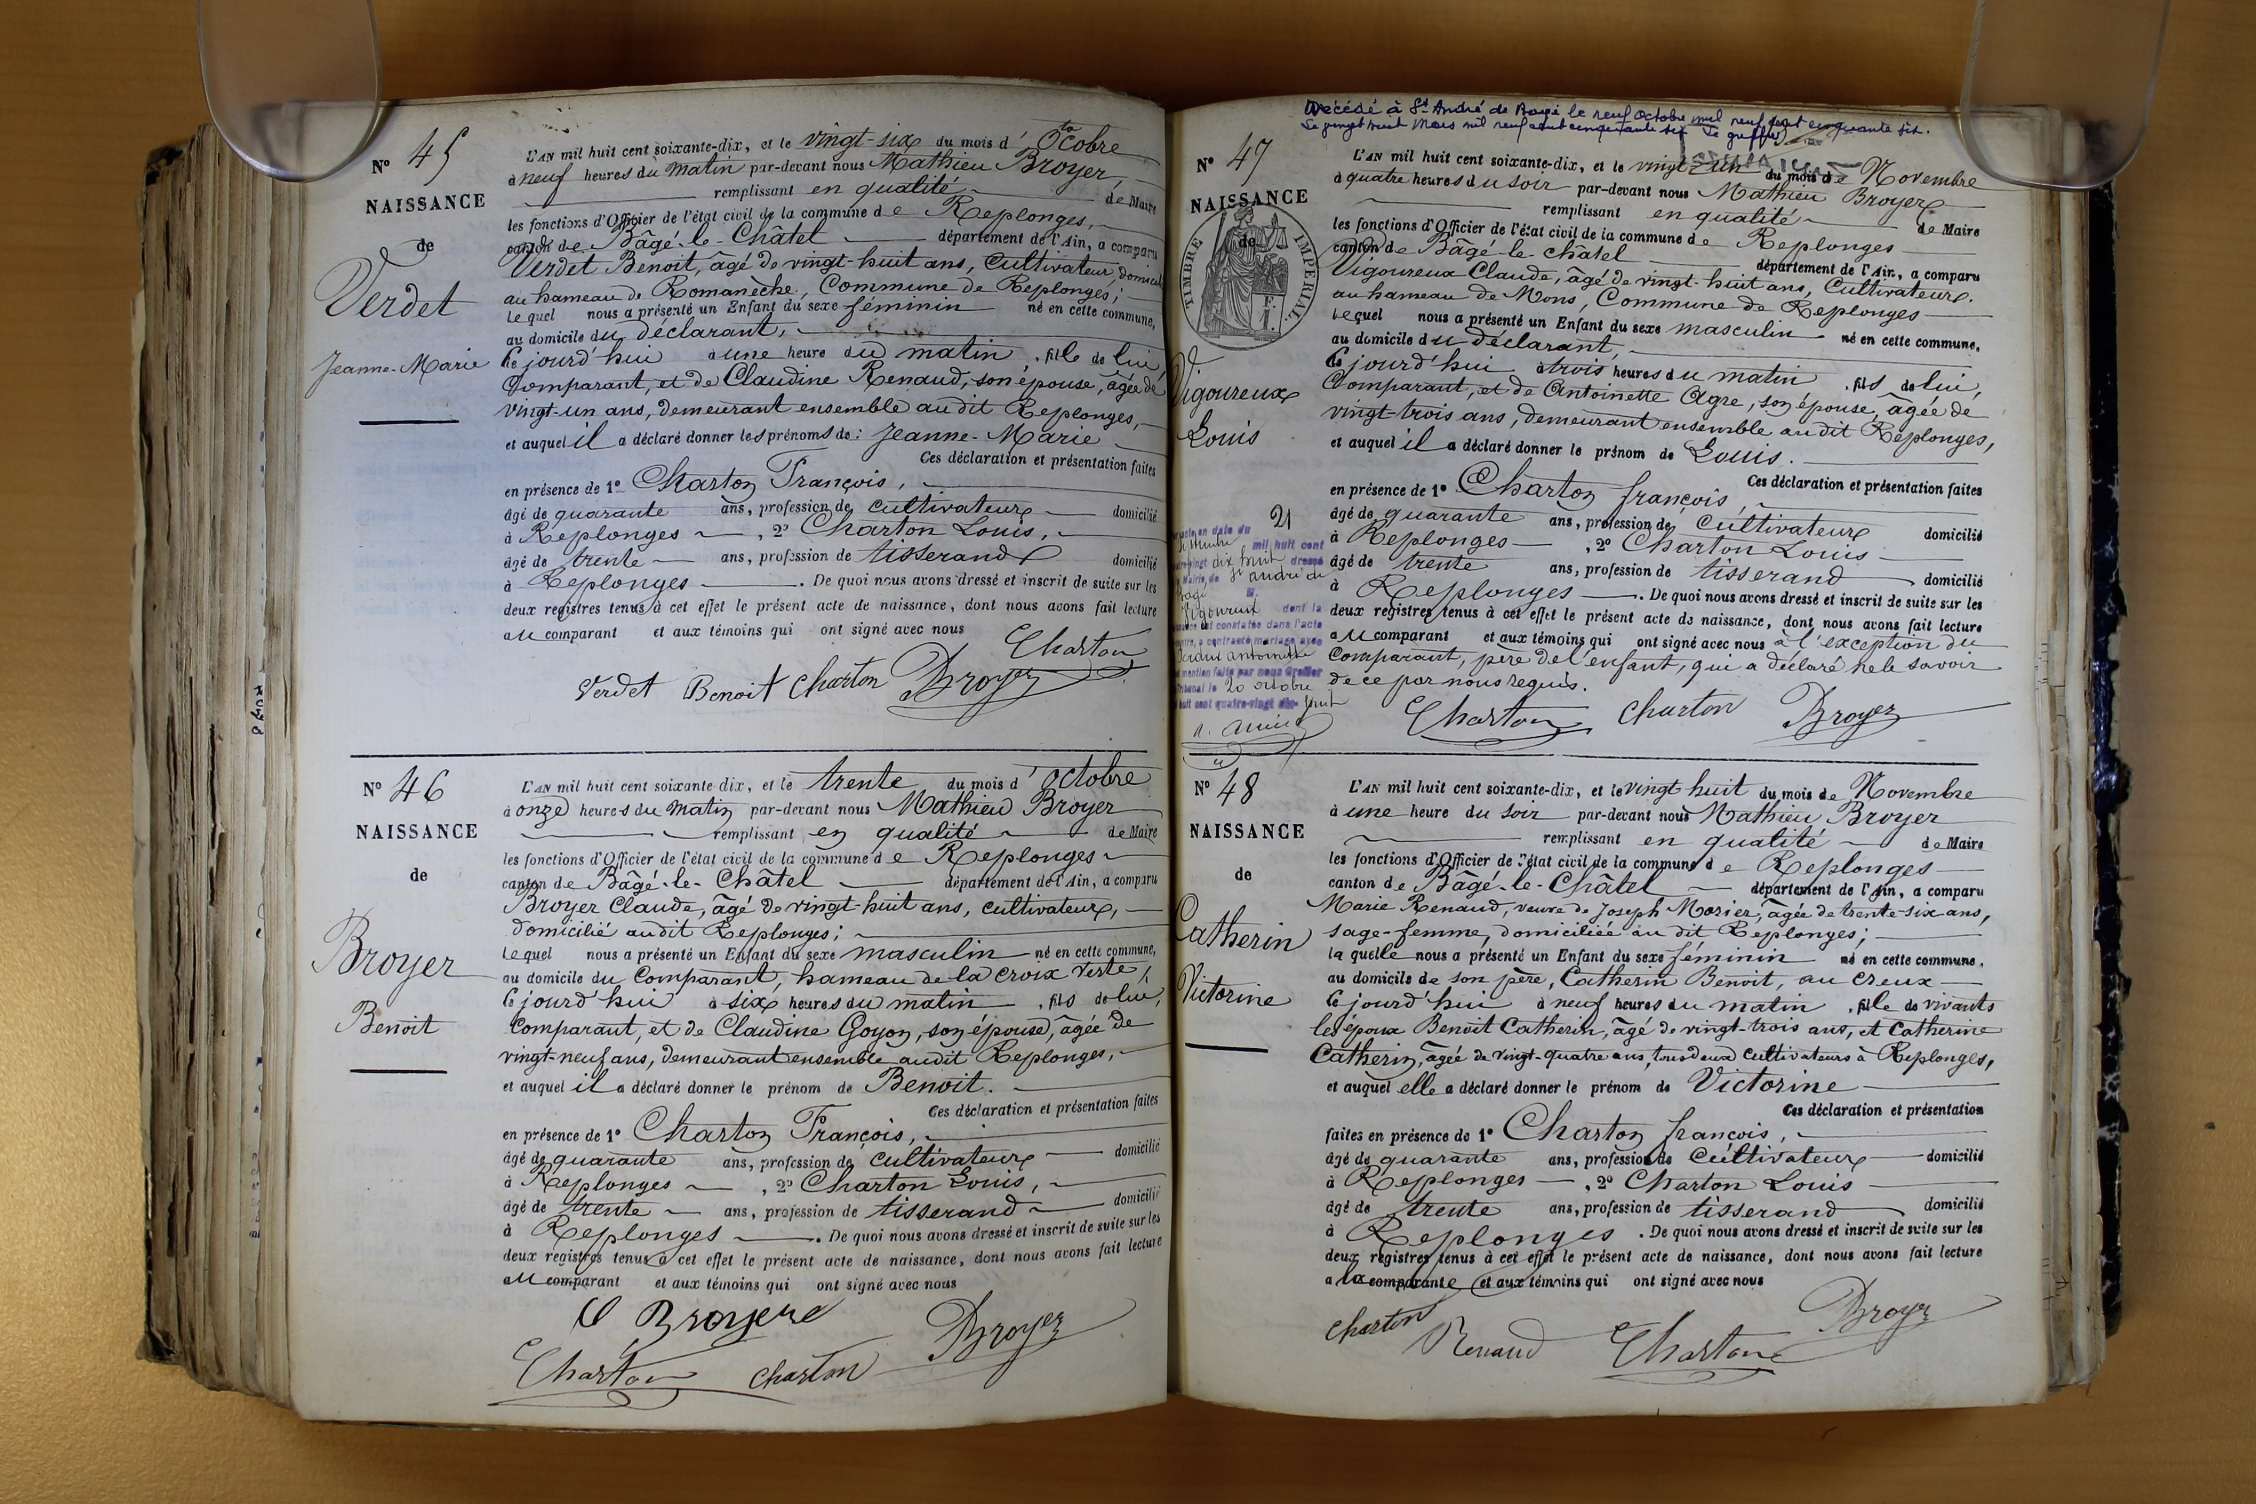 N° 45
NAISSANCE
de
Verdet
Jeanne-Marie
L'AN mil huit cent soixante-dix, et le vingt-six du mois d'Octobre
à neuf heures du matin par-devant nous Mathieu Broyer,
remplissant en qualité de Maire
les fonctions d'Officier de l'état civil de la commune de Replonges,
canton de Bâgé-le-Châtel département de l'Ain, a comparu
Verdet Benoit, âgé de vingt-huit ans, Cultivateur, domicilié
au hameau de Romaneche, Commune de Replonges;
Lequel nous a présenté un Enfant du sexe féminin né en cette commune,
au domicile du déclarant,
Ce jourd'hui à une heure du matin, fille de lui,
Comparant, et de Claudine Renaud, son épouse, âgée de
vingt-un ans, demeurant ensemble audit Replonges,
et auquel il a déclaré donner les prénoms de: Jeanne-Marie
Ces déclaration et présentation faites
en présence de 1° Charton François,
âgé de quarante ans, profession de cultivateur domicilié
à Replonges, 2° Charton Louis,
âgé de trente ans, profession de tisserand domicilié
à Replonges. De quoi nous avons dressé et inscrit de suite sur les
deux registres tenus à cet effet le présent acte de naissance, dont nous avons fait lecture
au comparant et aux témoins qui ont signé avec nous
Charton
Verdet Benoit Charton Broyer
N° 46
NAISSANCE
de
Broyer
Benoit
L'AN mil huit cent soixante-dix, et le trente du mois d'Octobre
à onze heures du matin par-devant nous Mathieu Broyer
remplissant en qualité de Maire
les fonctions d'Officier de l'état civil de la commune de Replonges
canton de Bâgé-le-Châtel département de l'Ain, a comparu
Broyer Claude, âgé de vingt-huit ans, cultivateur,
domicilié audit Replonges;
Lequel nous a présenté un Enfant du sexe masculin né en cette commune,
au domicile du Comparant, hameau de la Croix Verte,
Ce jourd'hui à six heures du matin, fils de lui,
Comparant, et de Claudine Goyon, son épouse, âgée de
vingt-neuf ans, demeurant ensemble audit Replonges,
et auquel il a déclaré donner le prénom de Benoit.
Ces déclaration et présentation faites
en présence de 1° Charton François,
âgé de quarante ans, profession de cultivateur domicilié
à Replonges, 2° Charton Louis,
âgé de trente ans, profession de tisserand domicilié
à Replonges. De quoi nous avons dressé et inscrit de suite sur les
deux registres tenus à cet effet le présent acte de naissance, dont nous avons fait lecture
au comparant et aux témoins qui ont signé avec nous
C Broyer
Charton Charton Broyer
Décédé à St André de Bagé le neuf octobre mil neuf cent cinquante six.
Le vingt huit Mars mil neuf cent cinquante six Le greffier
N° 47
NAISSANCE
de
TIMBRE IMPÉRIAL
Vigoureux
Louis
L'AN mil huit cent soixante-dix, et le vingt-un du mois de Novembre
à quatre heures du soir par-devant nous Mathieu Broyer
remplissant en qualité de Maire
les fonctions d'Officier de l'état civil de la commune de Replonges
canton de Bâgé-le-châtel département de l'Ain, a comparu
Vigoureux Claude, âgé de vingt-huit ans, Cultivateur.
au hameau de Mons, Commune de Replonges
Lequel nous a présenté un Enfant du sexe masculin né en cette commune,
au domicile du déclarant,
Ce jourd'hui à trois heures du matin, fils de lui,
Comparant, et de Antoinette Agre, son épouse, âgée de
vingt-trois ans, demeurant ensemble audit Replonges,
et auquel il a déclaré donner le prénom de Louis.
Ces déclaration et présentation faites
en présence de 1° Charton françois,
âgé de quarante ans, profession de cultivateur domicilié
à Replonges, 2° Charton Louis
âgé de trente ans, profession de tisserand domicilié
à Replonges. De quoi nous avons dressé et inscrit de suite sur les
deux registres tenus à cet effet le présent acte de naissance, dont nous avons fait lecture
au comparant et aux témoins qui ont signé avec nous à l'exception du
Comparant, père de l'enfant, qui a déclaré ne le savoir
de ce par nous requis.
Charton Charton Broyer
acte en date du 21
mil huit cent
vingt dix huit dressé
Mairie de St andré de
Bagé
Vigoureux dont la
est constatée dans l'acte
a contracté mariage avec
antoinette
mention faite par nous Greffier
le 20 octobre
huit cent quatre-vingt dix huit
N° 48
NAISSANCE
de
Catherin
Victorine
L'AN mil huit cent soixante-dix, et le vingt huit du mois de Novembre
à une heure du soir par-devant nous Mathieu Broyer
remplissant en qualité de Maire
les fonctions d'Officier de l'état civil de la commune de Replonges
canton de Bâgé-le-Châtel département de l'Ain, a comparu
Marie Renaud, veuve de Joseph Morier, âgée de trente-six ans,
sage-femme, domiciliée audit Replonges;
laquelle nous a présenté un Enfant du sexe féminin né en cette commune,
au domicile de son père, Catherin Benoit, au creux
Ce jourd'hui à neuf heures du matin, fille de vivants
les époux Benoit Catherin, âgé de vingt-trois ans, et Catherine
Catherin, âgée de vingt-quatre ans, tous deux cultivateurs à Replonges,
et auquel elle a déclaré donner le prénom de Victorine
Ces déclaration et présentation
faites en présence de 1° Charton françois,
âgé de quarante ans, profession de cultivateur domicilié
à Replonges, 2° Charton Louis
âgé de trente ans, profession de tisserand domicilié
à Replonges. De quoi nous avons dressé et inscrit de suite sur les
deux registres tenus à cet effet le présent acte de naissance, dont nous avons fait lecture
a la comparante et aux témoins qui ont signé avec nous
Charton Renaud Charton Broyer